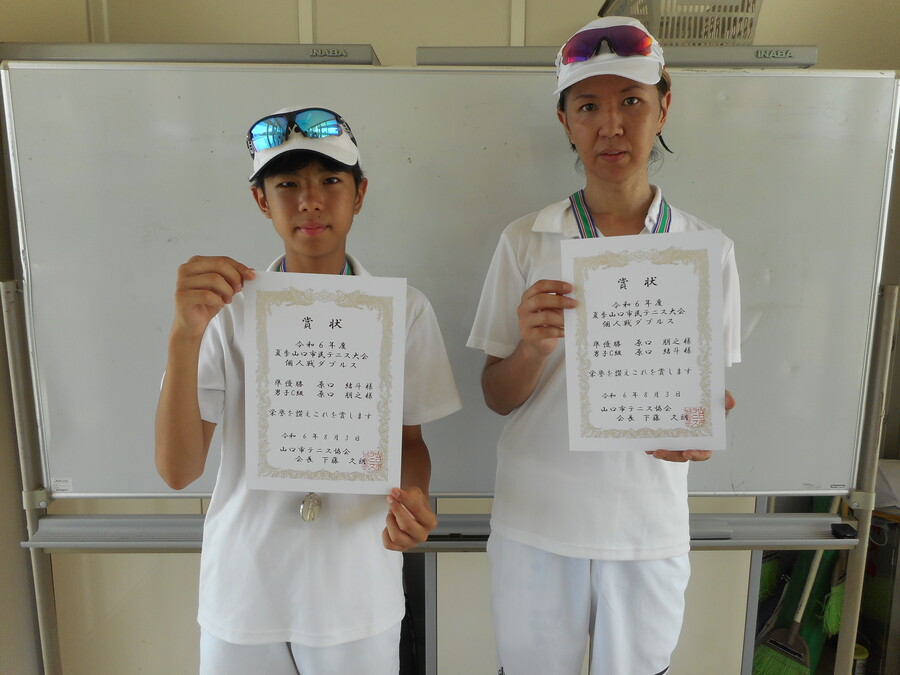 INABA
INABA
賞状
令和6年度
夏季山口市民テニス大会
個人戦ダブルス
準優勝 原口 結斗様
男子C級 原口 朋之様
栄誉を讃えこれを賞します
令和 6年 8月 3日
山口市テニス協会
会長 下藤 久
賞状
令和6年度
夏季山口市民テニス大会
個人戦ダブルス
準優勝 原口 朋之様
男子C級 原口 結斗様
栄誉を讃えこれを賞します
令和 6年 8月 3日
山口市テニス協会
会長 下藤 久